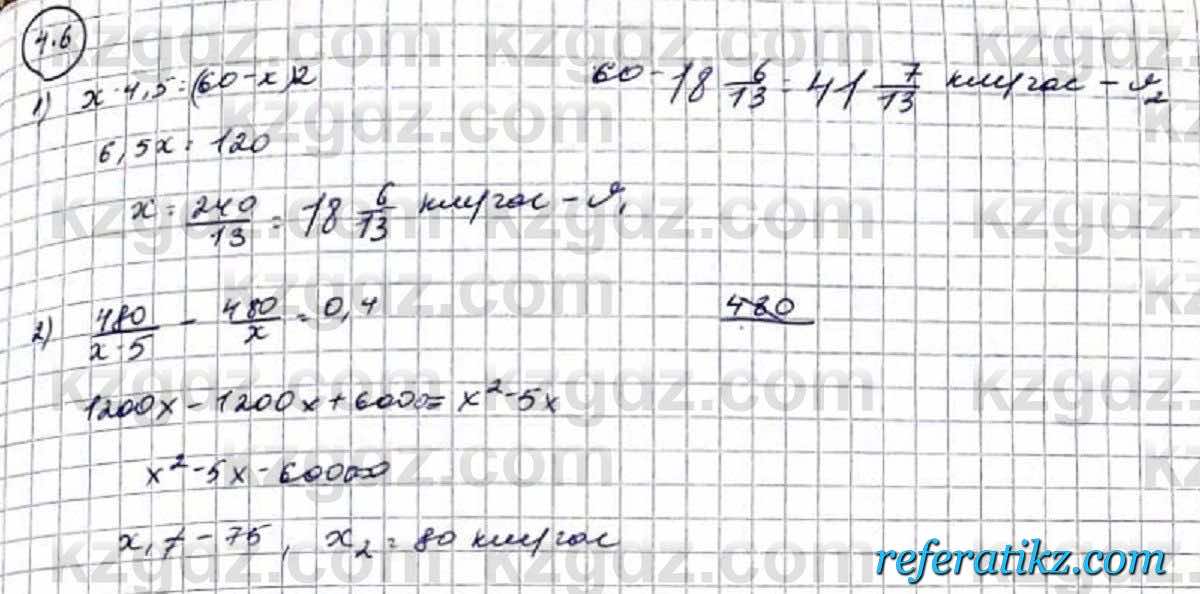 4.6
1) x · 4,5 = (60 - x)2
6,5x = 120
x = 240/13 = 18 6/13 км/час - v₁
60 - 18 6/13 = 41 7/13 км/час - v₂
2) 480/(x - 5) - 480/x = 0,4
480
1200x - 1200x + 6000 = x² - 5x
x² - 5x - 6000=0
x₁ = - 75, x₂ = 80 км/час
kzgdz.com
referatikz.com